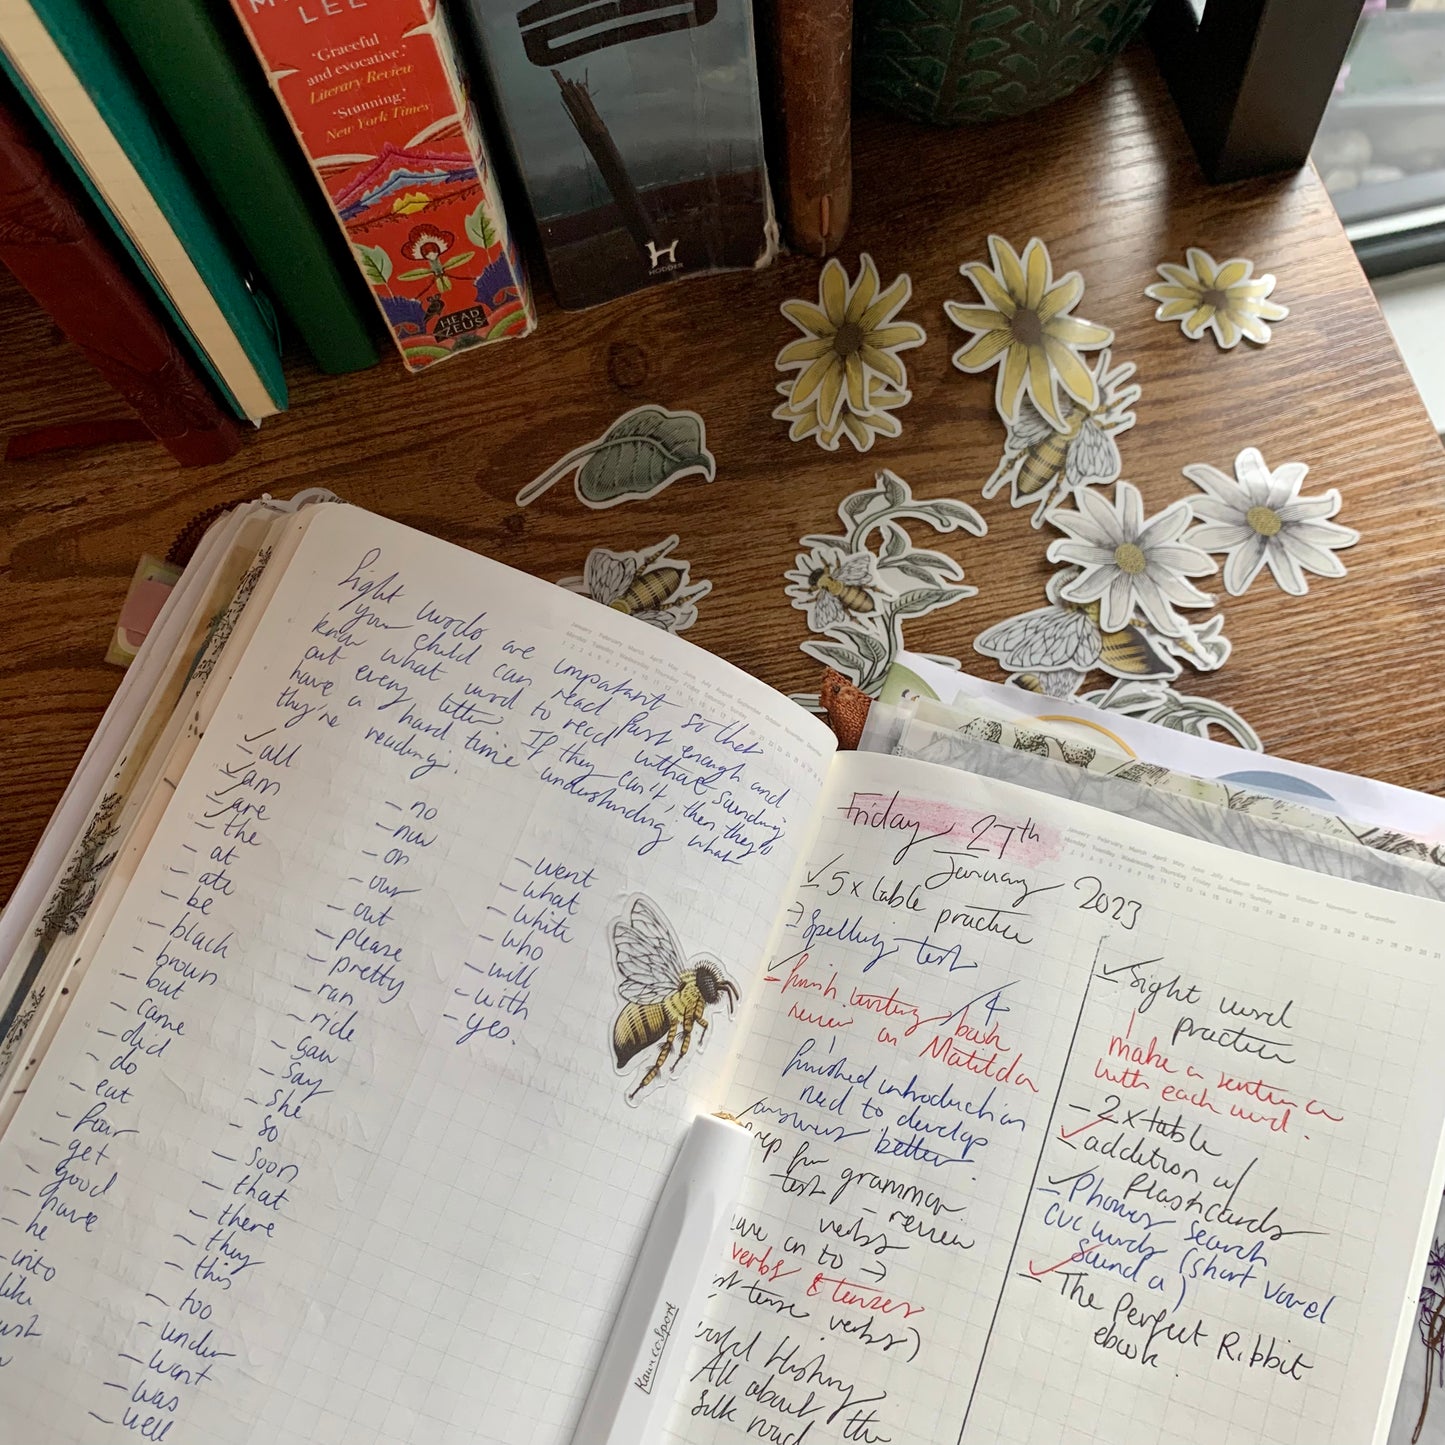 LEE
'Graceful
and evocative.'
Literary Review
'Stunning.'
New York Times
HEAD
ZEUS
HODDER
Sight words are important so that
your child can read fast enough and
know what word to read without sounding
out every letter. If they can't, then they'll
have a hard time understanding what
they're reading.
- all
- am
- are
- the
- at
- ate
- be
- black
- brown
- but
- came
- did
- do
- eat
- four
- get
- good
- have
- he
- into
like
- no
- now
- on
- our
- out
- please
- pretty
- ran
- ride
- saw
- say
- she
- so
- soon
- that
- there
- they
- this
- too
- under
- want
- was
- well
- went
- what
- white
- who
- will
- with
- yes.
Friday, 27th
January 2023
- 5x table practice
→ Spelling test
- finish writing book
review on Matilda
finished introduction &
need to develop
answers better
prep for grammar
test - review
verbs
on to →
verbs & tenses
tense verbs)
History
All about the
Silk road
- Sight word
practice
make a sentence
with each word.
- 2x table
- addition w/
flashcards
- Phonics search
CVC words (short vowel
sound a)
- The Perfect Ribbit
ebook
Kaweco Sport